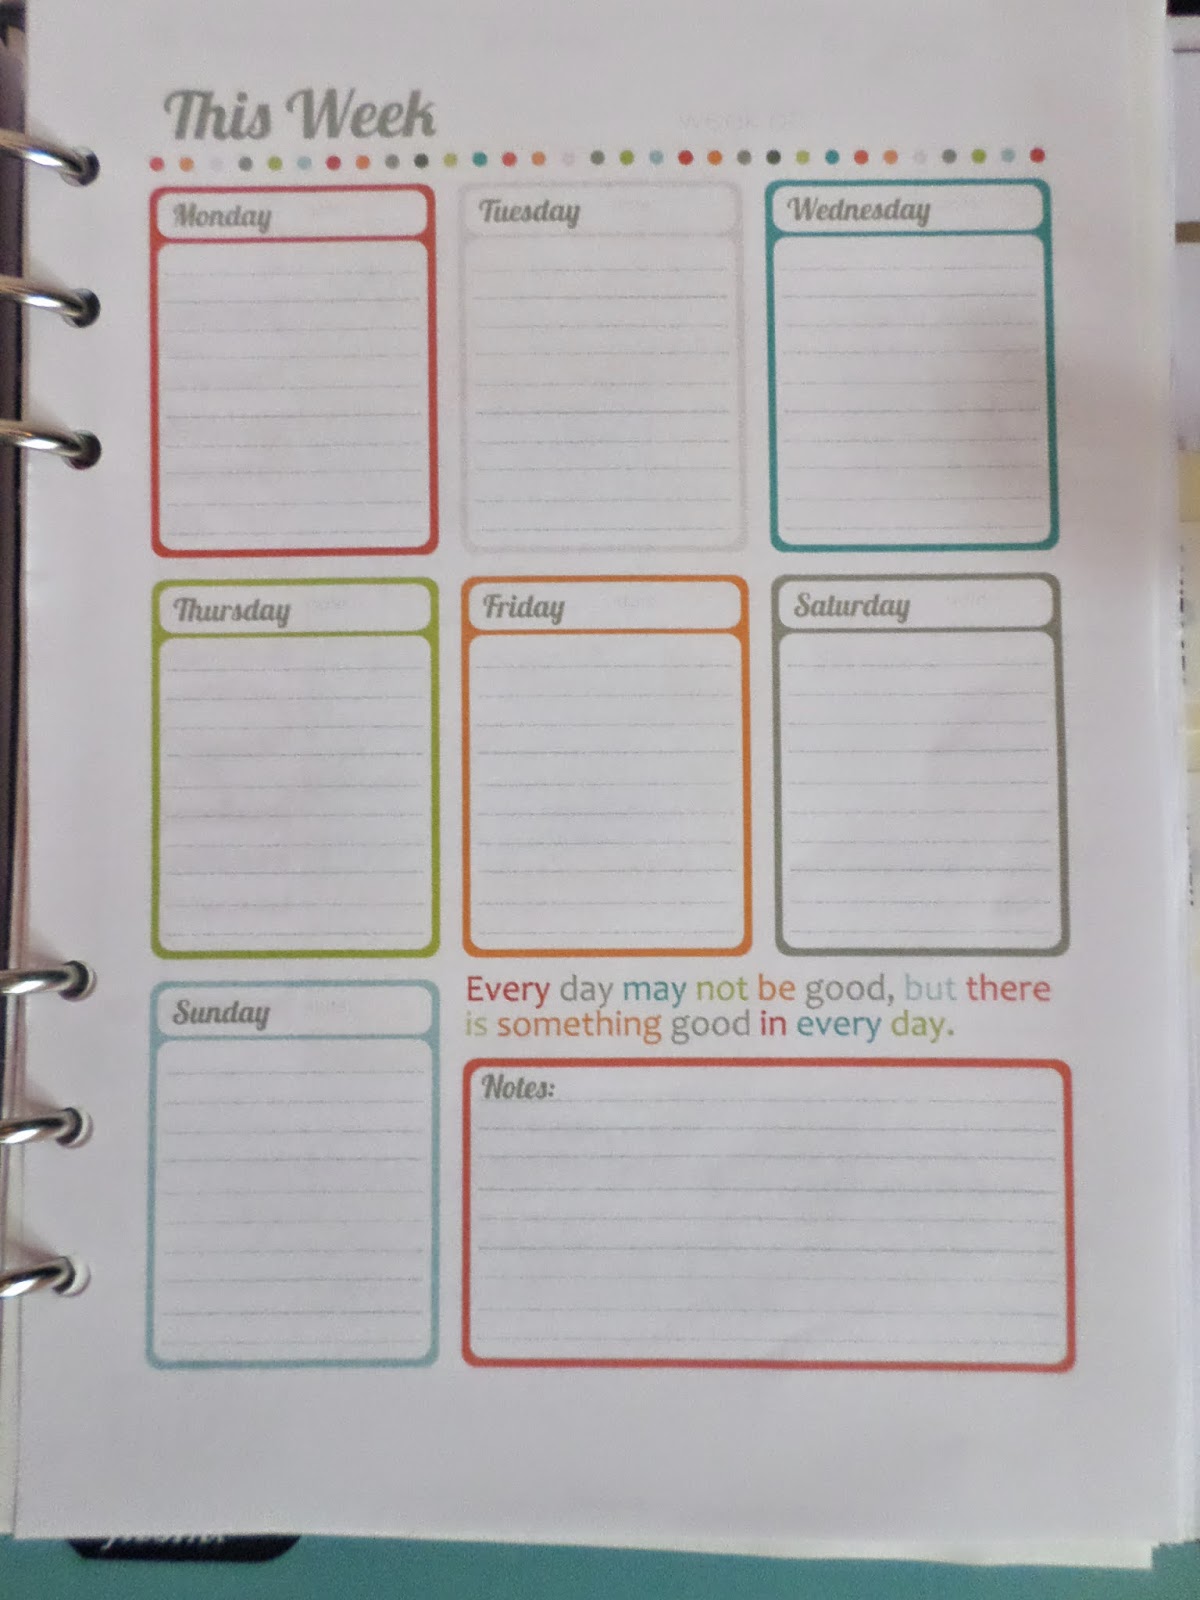 This Week
week of
Monday
Tuesday
Wednesday
Thursday
date:
Friday
date:
Saturday
date:
Sunday
date:
Every day may not be good, but there
is something good in every day.
Notes: